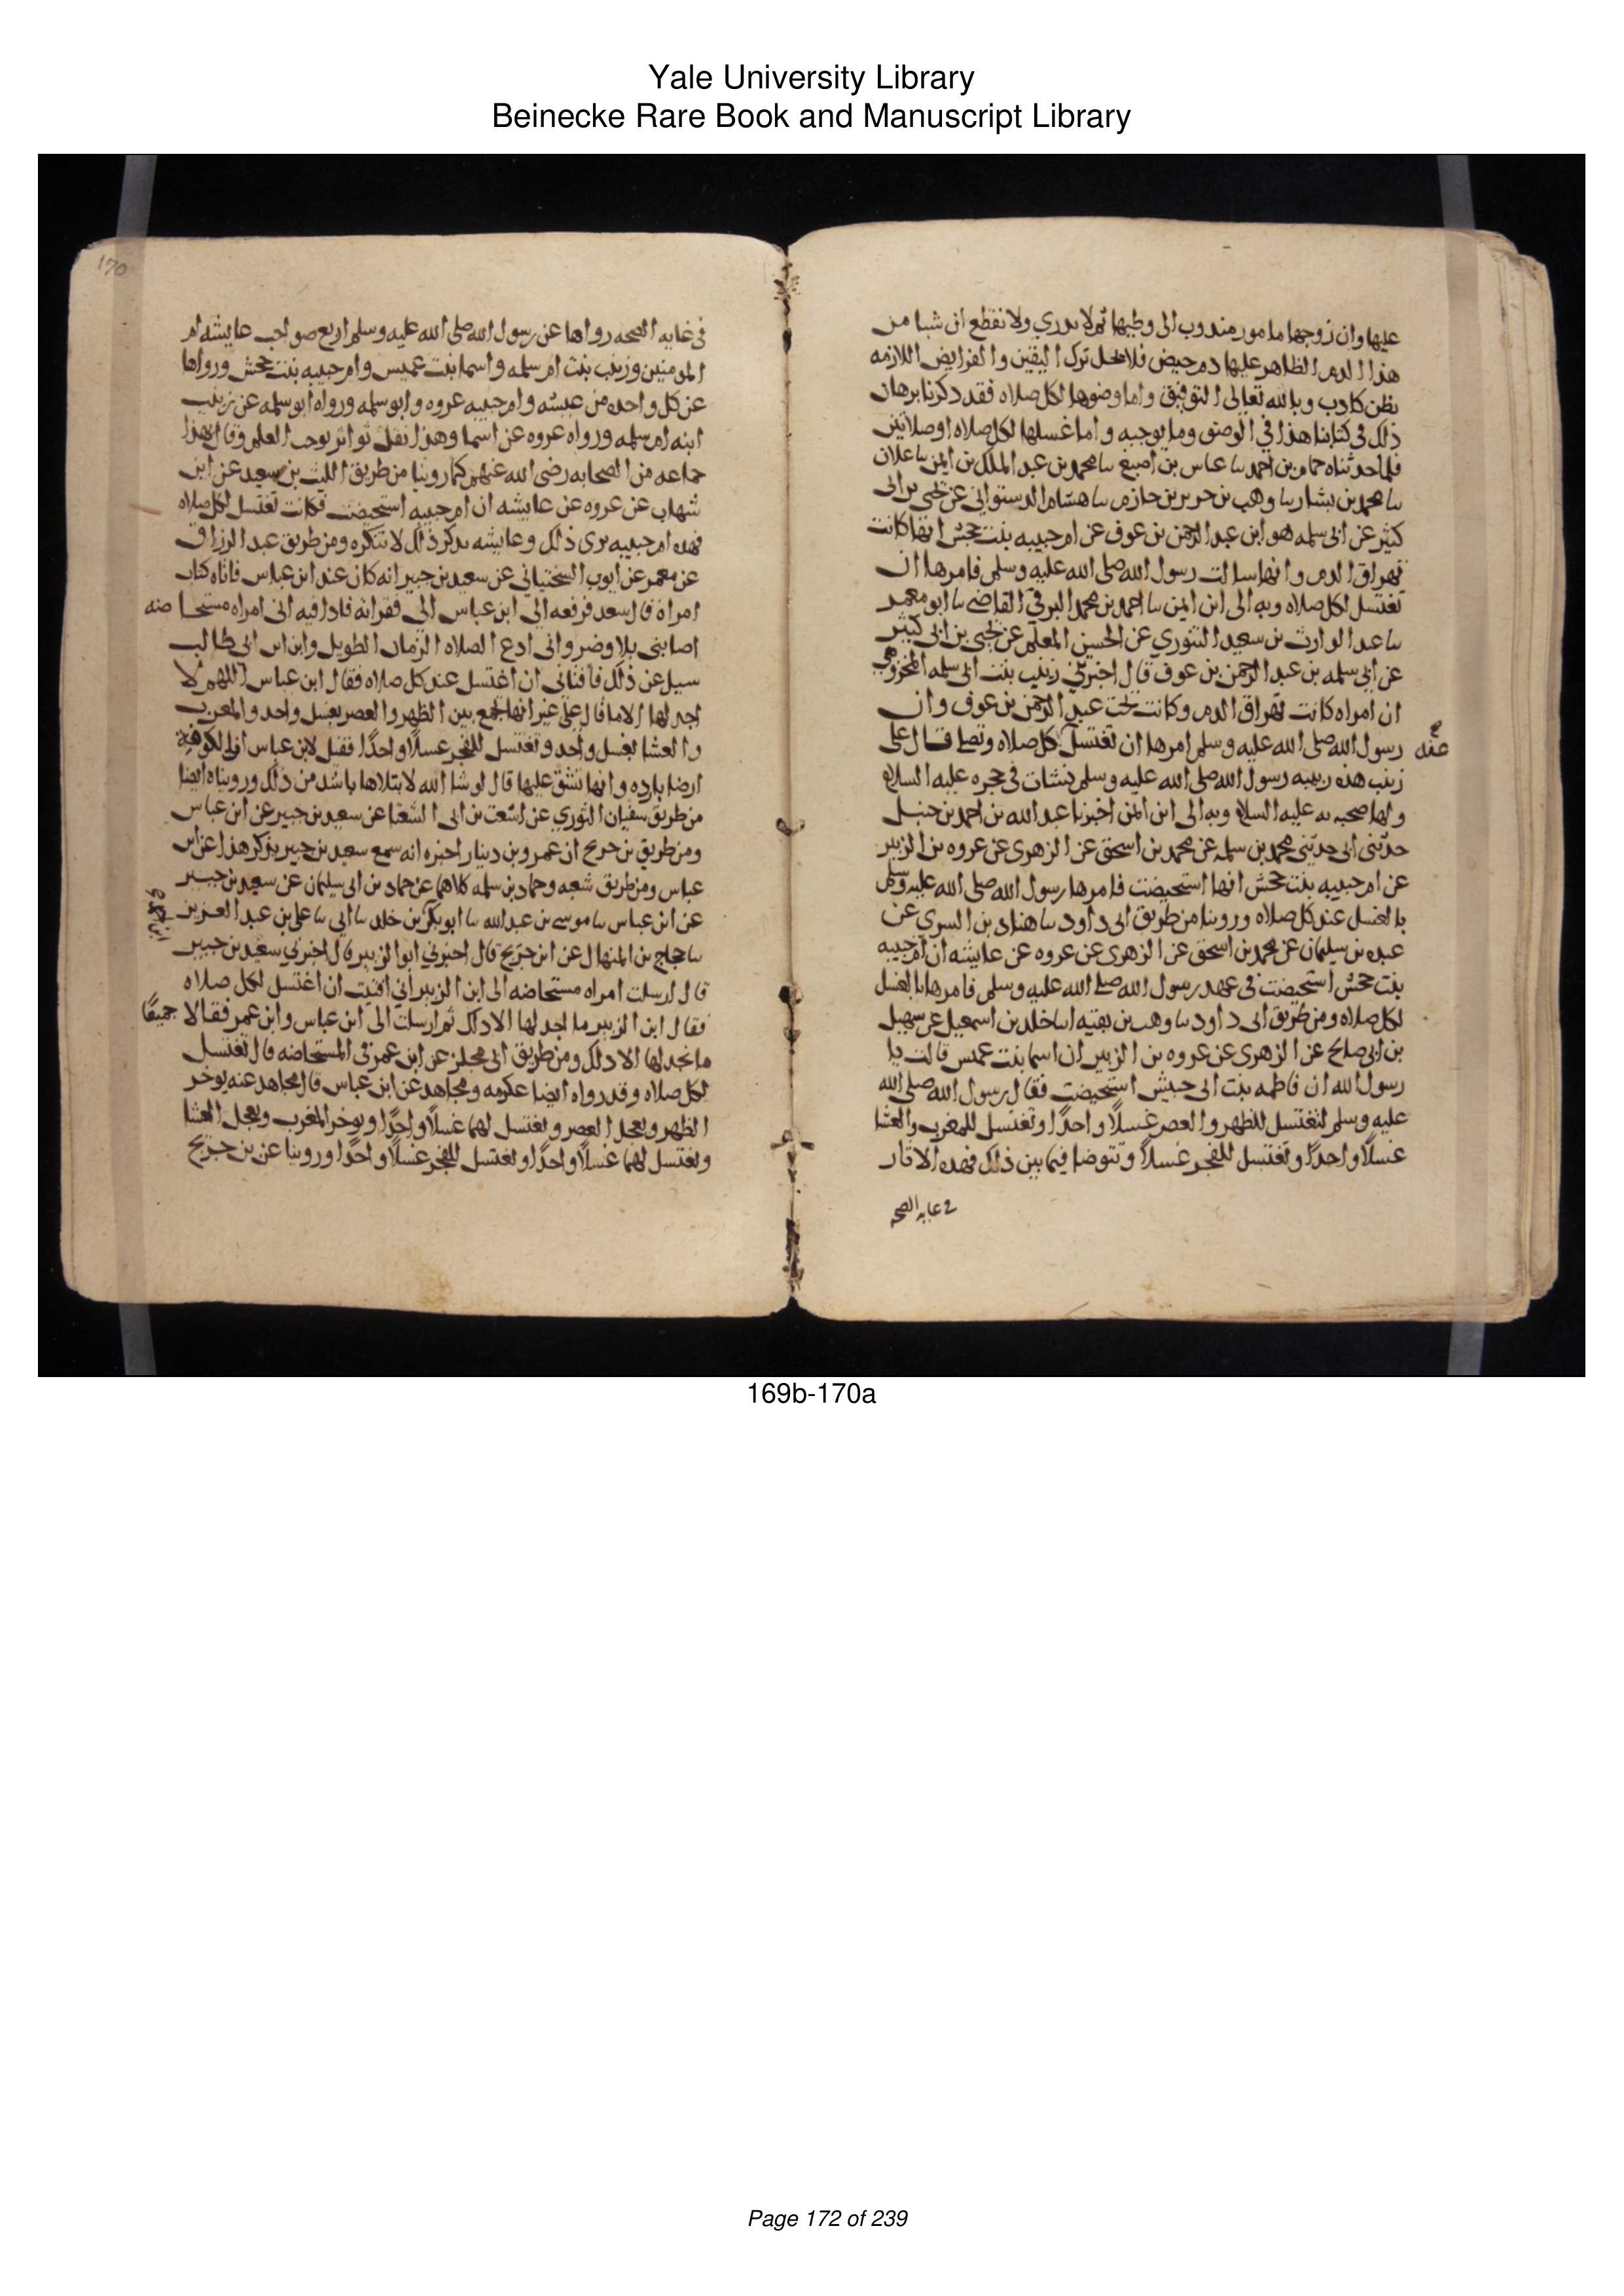 Yale University Library
Beinecke Rare Book and Manuscript Library
عليها وان زوجها مامور مندوب الى وطيها ثم لا ندري ولا نقطع ان شيا من
هذا الدم الظاهر عليها دم حيض فلا يحل ترك اليقين والفرايض اللازمه
بظن كادب وبالله تعالى التوفيق واما وضوها لكل صلاه فقد ذكرنا برهان
ذلك في كتابنا هذا في الوضو وما يوجبه واما غسلها لكل صلاه او صلاتين
فلما حدثناه حمام بن احمد سا عباس بن اصبغ سا محمد بن عبد الملك بن ايمن سا علان
سا محمد بن بشار سا وهب بن جرير بن حازم سا هشام الدستواني عن يحيى بن ابى
كثير عن ابى سلمه هو ابن عبد الرحمن بن عوف عن ام حبيبه بنت جحش انها كانت
تهراق الدم وانها سالت رسول الله صلى الله عليه وسلم فامرها ان
تغتسل لكل صلاه وبه الى ابن ايمن سا احمد بن محمد البرتي القاضي سا ابو معمر
سا عبد الوارث بن سعيد التنوري عن الحسين المعلم عن يحيى بن ابى كثير
عن ابى سلمه بن عبد الرحمن بن عوف قال اخبرتني زينب بنت ابى سلمه المخزومي
ان امراه كانت تهراق الدم وكانت تحت عبد الرحمن بن عوف وان
رسول الله صلى الله عليه وسلم امرها ان تغتسل كل صلاه وتصلي قال على
زينب هذه ربيبه رسول الله صلى الله عليه وسلم نشات في حجره عليه السلام
ولها صحبه به عليه السلام وبه الى ابن ايمن اخبرنا عبد الله بن احمد بن حنبل
حدثني ابى حدثني محمد بن سلمه عن محمد بن اسحق عن الزهري عن عروه بن الزبير
عن ام حبيبه بنت جحش انها استحيضت فامرها رسول الله صلى الله عليه وسلم
بالغسل عند كل صلاه وروينا من طريق ابى داود سا هناد بن السري عن
عبده بن سليمان عن محمد بن اسحق عن الزهري عن عروه عن عايشه ان ام حبيبه
بنت جحش استحيضت في عهد رسول الله صلى الله عليه وسلم فامرها بالغسل
لكل صلاه ومن طريق ابى داود سا وهب بن بقيه اسا خالد بن اسمعيل عن سهيل
بن ابى صالح عن الزهري عن عروه بن الزبير ان اسما بنت عميس قالت يا
رسول الله ان فاطمه بنت ابى حبيش استحيضت فقال رسول الله صلى الله
عليه وسلم لتغتسل للظهر والعصر غسلاً واحدًا وتغتسل للمغرب والعشا
غسلاً واحدًا وتغتسل للفجر غسلاً وتتوضا فيما بين ذلك فهذه الاثار
في غايه الصحه
170
في غايه الصحه رواها عن رسول الله صلى الله عليه وسلم اربع صواحب عايشه ام
المومنين وزينب بنت ام سلمه واسما بنت عميس وام حبيبه بنت جحش ورواها
عن كل واحده من عيشه وام حبيبه عروه وابو سلمه ورواه ابو سلمه عن زينب
ابنه ام سلمه ورواه عروه عن اسما وهذا نقل تواتر يوجب العلم وقال بهذا
جماعه من الصحابه رضى الله عنهم كما روينا من طريق الليث بن سعيد عن ابن
شهاب عن عروه عن عايشه ان ام حبيبه استحيضت فكانت تغتسل لكل صلاه
فهذه ام حبيبه ترى ذلك وعايشه تذكر ذلك لا تنكره ومن طريق عبد الرزاق
عن معمر عن ايوب السختياني عن سعيد بن جبير انه كان عند ابن عباس فاتاه كتاب
امراه قال سعد فرفعه الي ابن عباس الي فقرانه فاذا فيه اني امراه مستحاضه
اصابنى بلا وضر وانى ادع الصلاه الزمان الطويل وابن ابى طالب
سيل عن ذلك فافتاني ان اغتسل عند كل صلاه فقال ابن عباس اللهم لا
اجد لها الا ما قال على غير انها تجمع بين الظهر والعصر بغسل واحد والمغرب
والعشا بغسل واحد وتغتسل للفجر غسلاً واحدًا فقيل لابن عباس ان الكوفة
ارض بارده وانها تشق عليها قال لو شا الله لابتلاها باشد من ذلك ورويناه ايضا
من طريق سفيان الثوري عن اشعث بن ابى الشعثا عن سعيد بن جبير عن ابن عباس
ومن طريق بن جريج ان عمرو بن دينار اخبره انه سمع سعيد بن جبير يذكر هذا عن ابن
عباس ومن طريق شعبه وحماد بن سلمه كلاهما عن حماد بن ابى سليمان عن سعيد بن جبير
عن ابن عباس سا موسى بن عبد الله سا ابو بكر بن خالد سا ابي سا علي بن عبد العزيز
سا حجاج بن المنهال عن ابن جريج قال اخبرني ابو الزبير قال اخبرني سعيد بن جبير
قال ارسلت امراه مستحاضه الى ابن الزبير اني افتيت ان اغتسل لكل صلاه
فقال ابن الزبير ما اجد لها الا ذلك ثم ارسلت الى ابن عباس وابن عمر فقالا جميعًا
ما نجد لها الا ذلك ومن طريق ابى مجلز عن ابن عمر في المستحاضه قال تغتسل
لكل صلاه وقد رواه ايضا عكرمه ومجاهد عن ابن عباس قال مجاهد عنه يوخر
الظهر ويعجل العصر وتغتسل لهما غسلاً واحدًا ويوخر المغرب ويعجل العشا
وتغتسل لهما غسلاً واحدًا وتغتسل للفجر غسلاً واحدًا وروينا عن بن جريج
169b-170a
Page 172 of 239